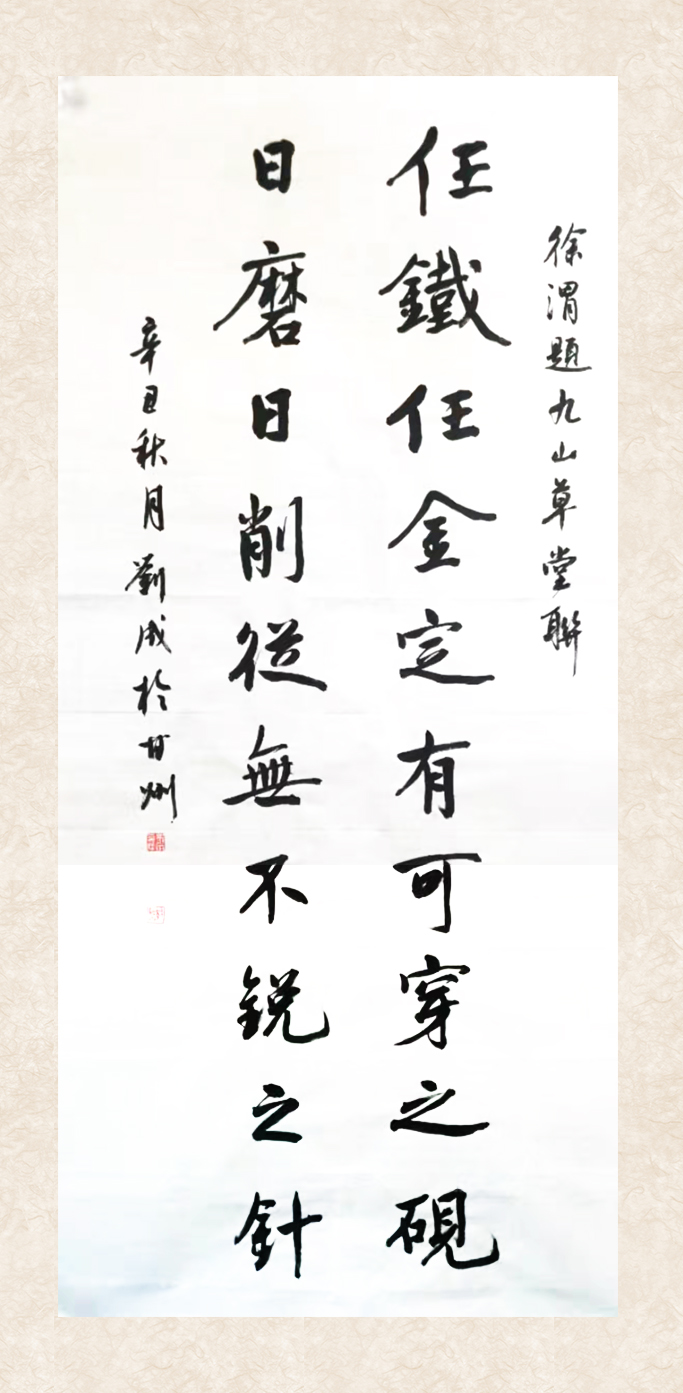 徐渭題九山草堂聯
任鐵任金定有可穿之硯
日磨日削從無不銳之針
辛丑秋月劉成於甘州